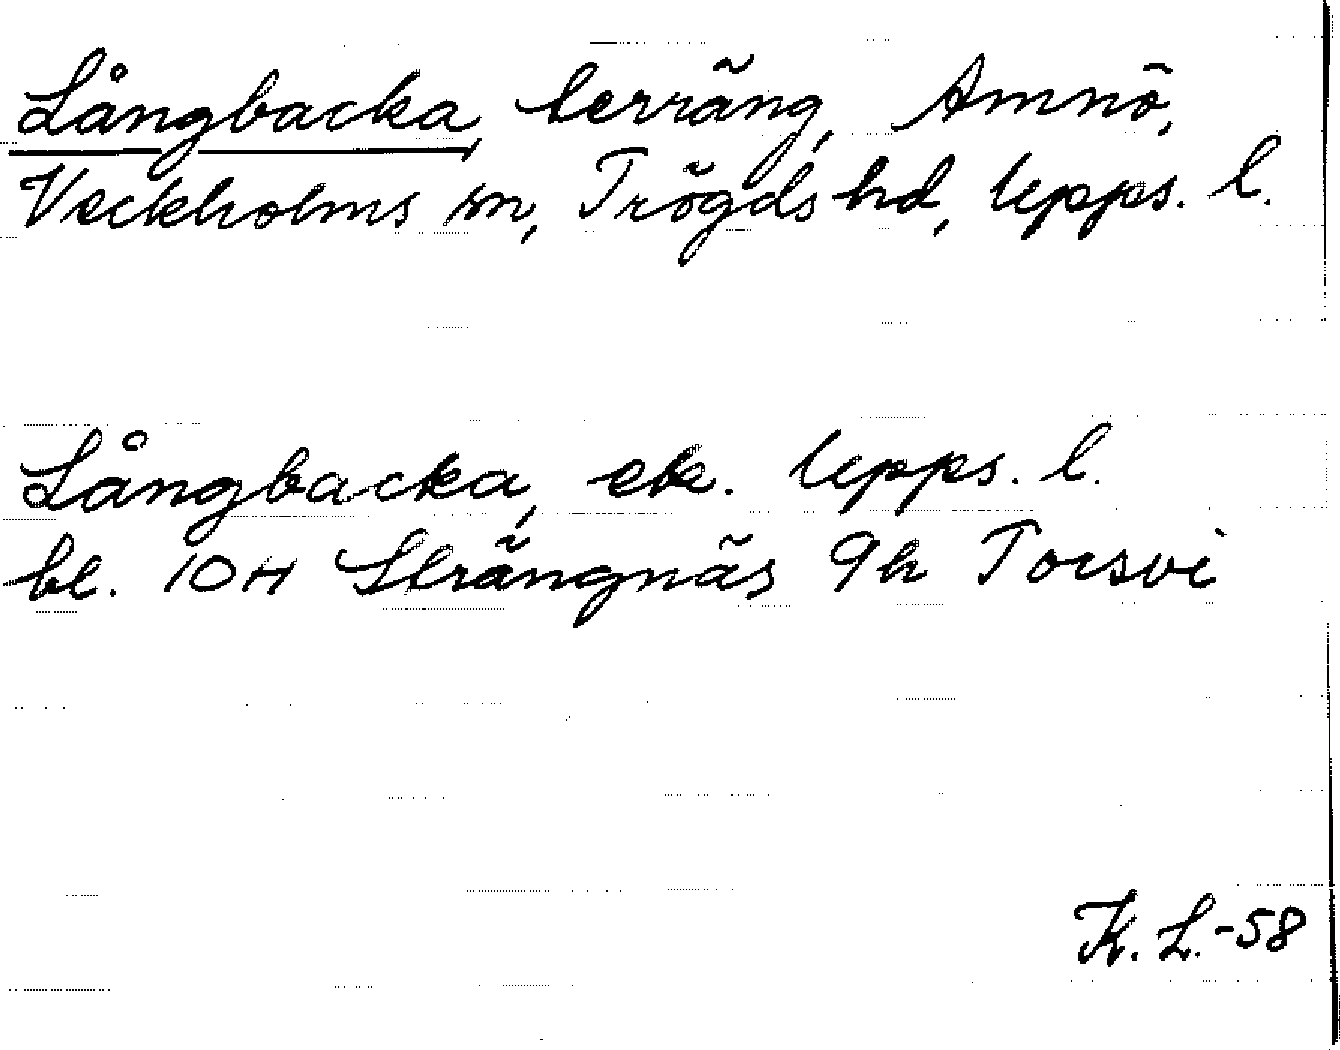 Långbacka, terräng, Amnö,
Veckholms sn, Trögds hd, Upps. l.
Långbacka, ek. Upps. l.
bl. 10H Strängnäs 9h Torsvi
K. L. -58